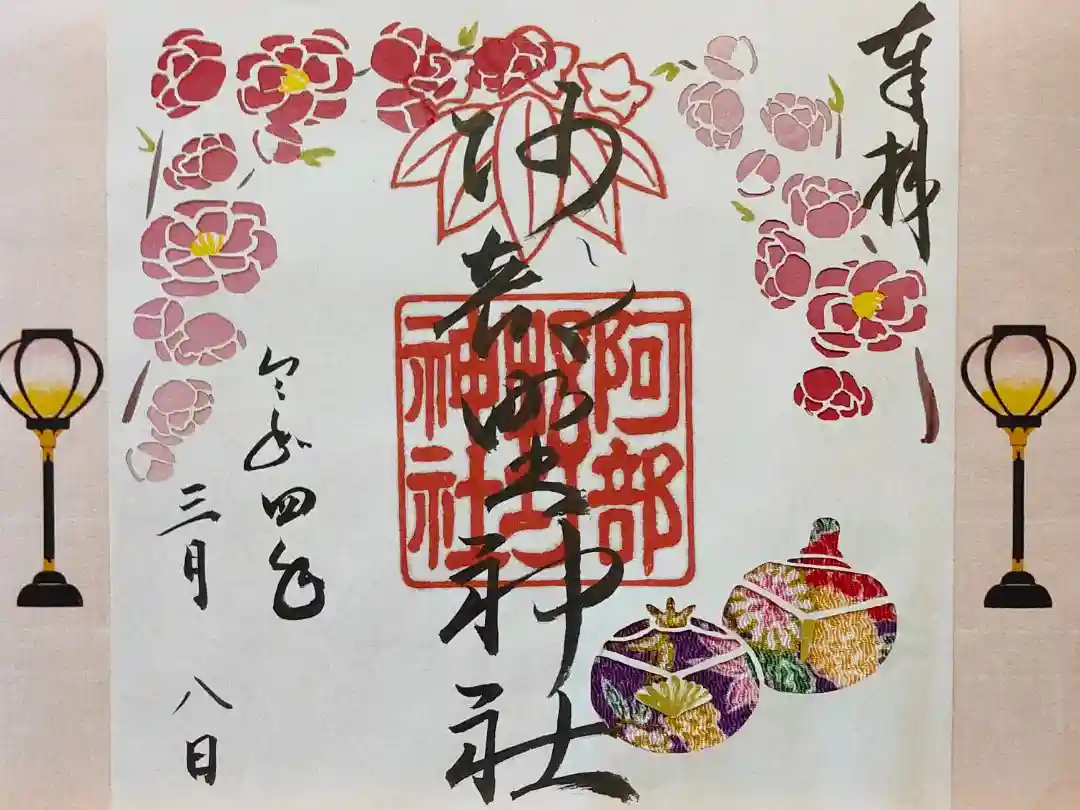 奉拝
阿部野神社
阿部
野
神社
令和四年
三月八日